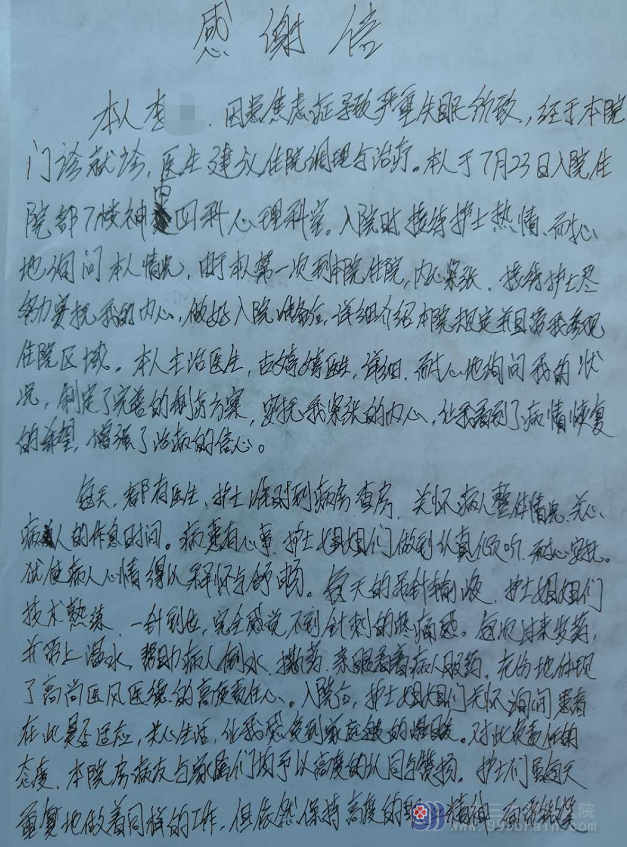 感谢信
本人李 因患焦虑症导致严重失眠所致，经于本院
门诊就诊，医生建议住院调理与治疗。本人于7月23日入院住
院部7楼神内四科心理科室。入院时接待护士热情、耐心
地询问本人情况，由于本人第一次到本院住院，内心紧张，接待护士尽
努力安抚我的内心，做好入院准备，详细介绍本院规定并且带我参观
住院区域。本人主治医生，古婷婷医生，详细、耐心地询问我的状
况，制定了完善的利与方案，安抚我紧张的内心，让我看到了病情恢复
的希望，增强了治病的信心。
每天，都有医生、护士准时到病房查房，关怀病人整体情况、关心
病人的作息时间。病患有心事，护士姐姐们做到认真倾听、耐心安抚。
犹使病人心情得以释怀与舒畅。每天的吊针输液，护士姐姐们
技术熟练，一针到位，完全感觉不到针刺的疼痛感。每次过来发药，
并带上温水，帮助病人倒水、撕药、亲眼看着病人服药，充份地体现
了高尚医风医德的高度责任心。入院后，护士姐姐们关怀询问患者
在此是否适应，关心生活，让我感受到家庭般的温暖。对此负责任的
态度，本院房病友与家属们均予以高度的认同与赞扬。护士们虽每天
重复地做着同样的工作，但依然保持高度的 精神，面带微笑
www.999brain.com